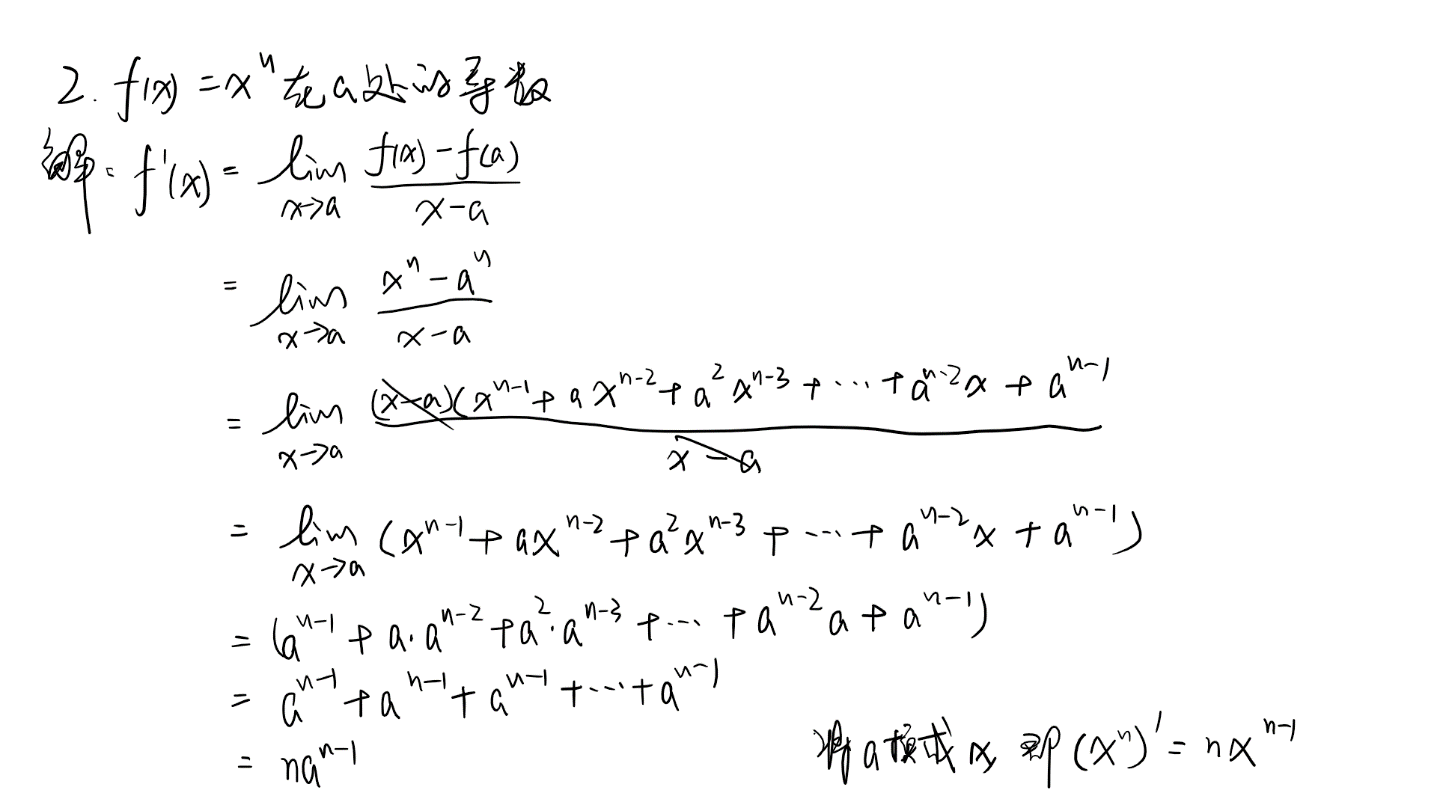 2. f(x) = xⁿ 在a处的导数
解: f'(x) = lim_{x→a} (f(x) - f(a)) / (x - a)
= lim_{x→a} (xⁿ - aⁿ) / (x - a)
= lim_{x→a} (x-a)(x^{n-1} + ax^{n-2} + a²x^{n-3} + ··· + a^{n-2}x + a^{n-1}) / (x - a)
= lim_{x→a} (x^{n-1} + ax^{n-2} + a²x^{n-3} + ··· + a^{n-2}x + a^{n-1})
= (a^{n-1} + a·a^{n-2} + a²·a^{n-3} + ··· + a^{n-2}a + a^{n-1})
= a^{n-1} + a^{n-1} + a^{n-1} + ··· + a^{n-1}
= na^{n-1}
将a换成x, 即(xⁿ)' = nx^{n-1}